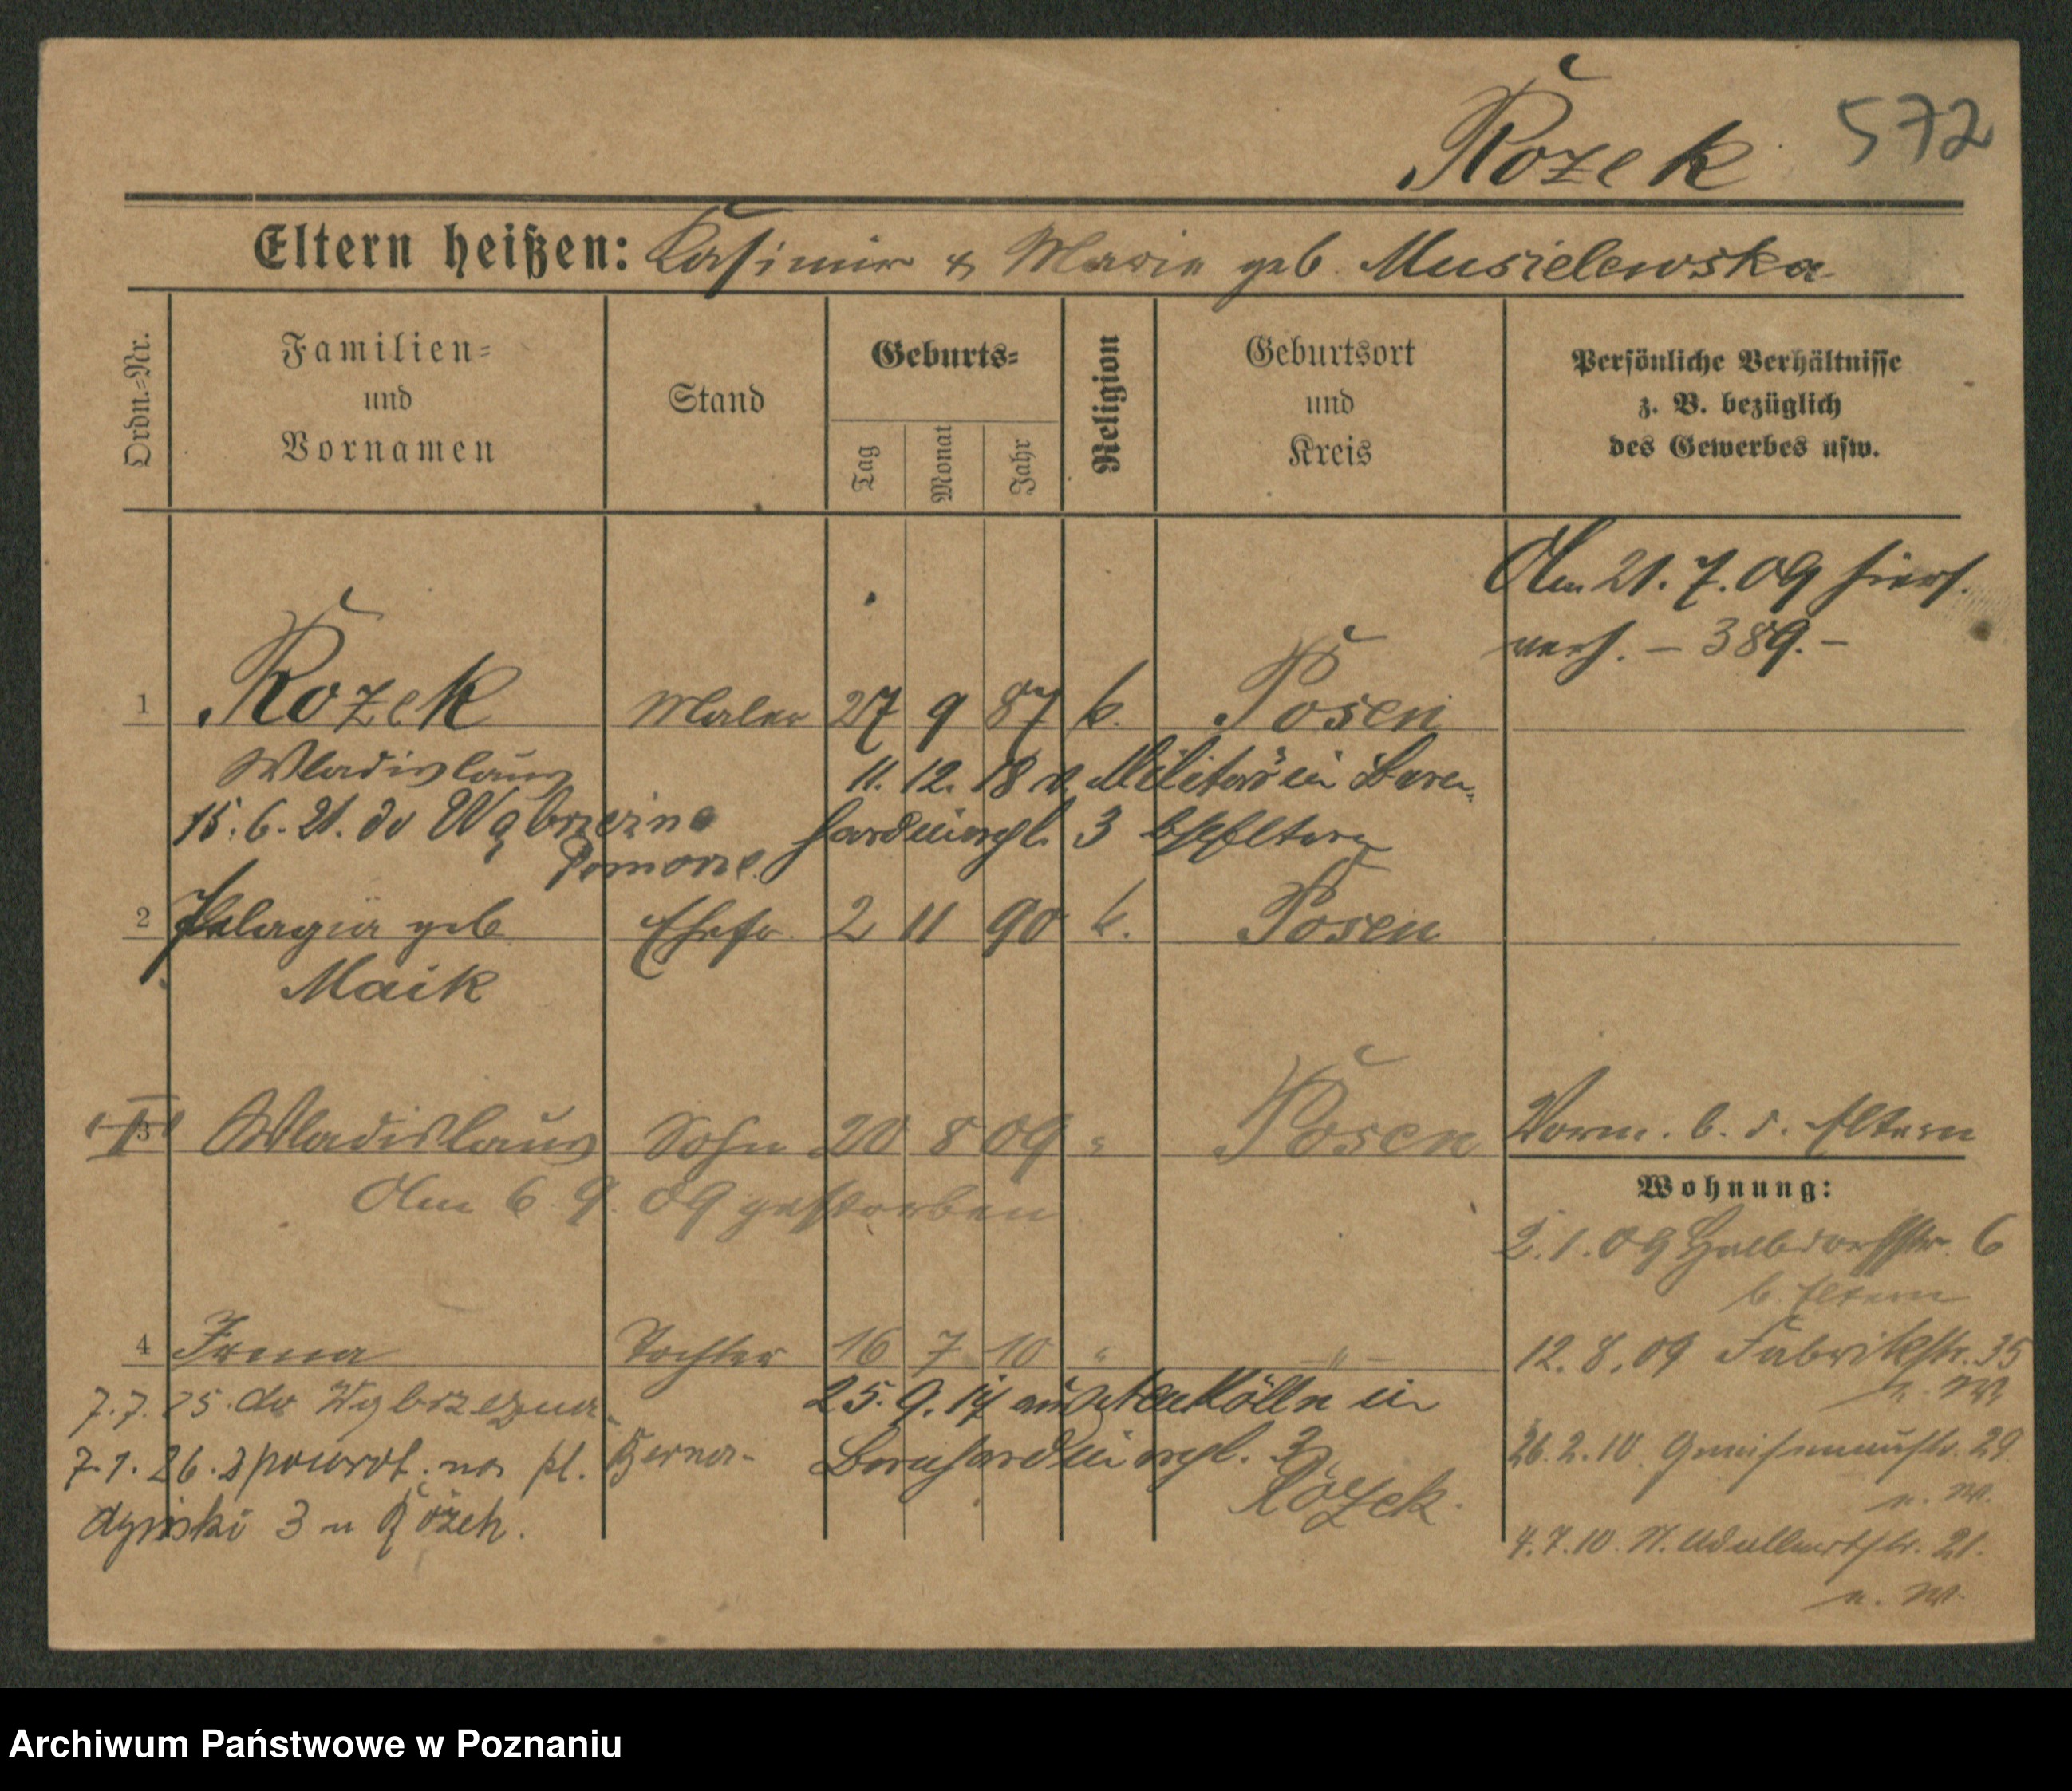 Rozek 572
Eltern heißen: Casimir & Marie geb. Musielewska
Ordn.-Nr.
Familien-
und
Vornamen
Stand
Geburts-
Tag
Monat
Jahr
Religion
Geburtsort
und
Kreis
Persönliche Verhältnisse
z. B. bezüglich
des Gewerbes usw.
Am 21.7.09 hiers.
verh. – 389. –
1 Rozek Maler 27 9 87 k. Posen
Wladislaus
11. 12. 18 v. Militär in Bern-
15.6.21. do Wąbrzeźna
hardinerpl. 3 b/Eltern
Pomorze
2 Pelagia geb. Ehefr. 2 11 90 k. Posen
Maik
3 Wladislaus Sohn 20 8 09 " Posen
Vorm. b. d. Eltern
Am 6.9.09 gestorben
Wohnung:
2.1.09 Halbdorfstr. 6
b. Eltern
4 Irena Tochter 16 7 10 " – " –
12.8.09 Fabrikstr. 35
u. W.
7.7.25. do Wąbrzezna
25.9.14 aus Neukölln in
7.1.26. z powrot. na pl. Berna-
Bernhardinerpl. 3
26.2.10. Gneisenaustr. 29.
Rozek.
u. W.
dyński 3 u Rożek.
4.7.10. N. Adalbertstr. 21.
u. W.
Archiwum Państwowe w Poznaniu